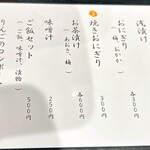 浅漬け
おにぎり
（梅、おかか）
各300円
焼きおにぎり
300円
お茶漬け
（あおさ、梅）
各600円
味噌汁
250円
ご飯セット
（ご飯、味噌汁、漬物）
500円
りんごのコンポート